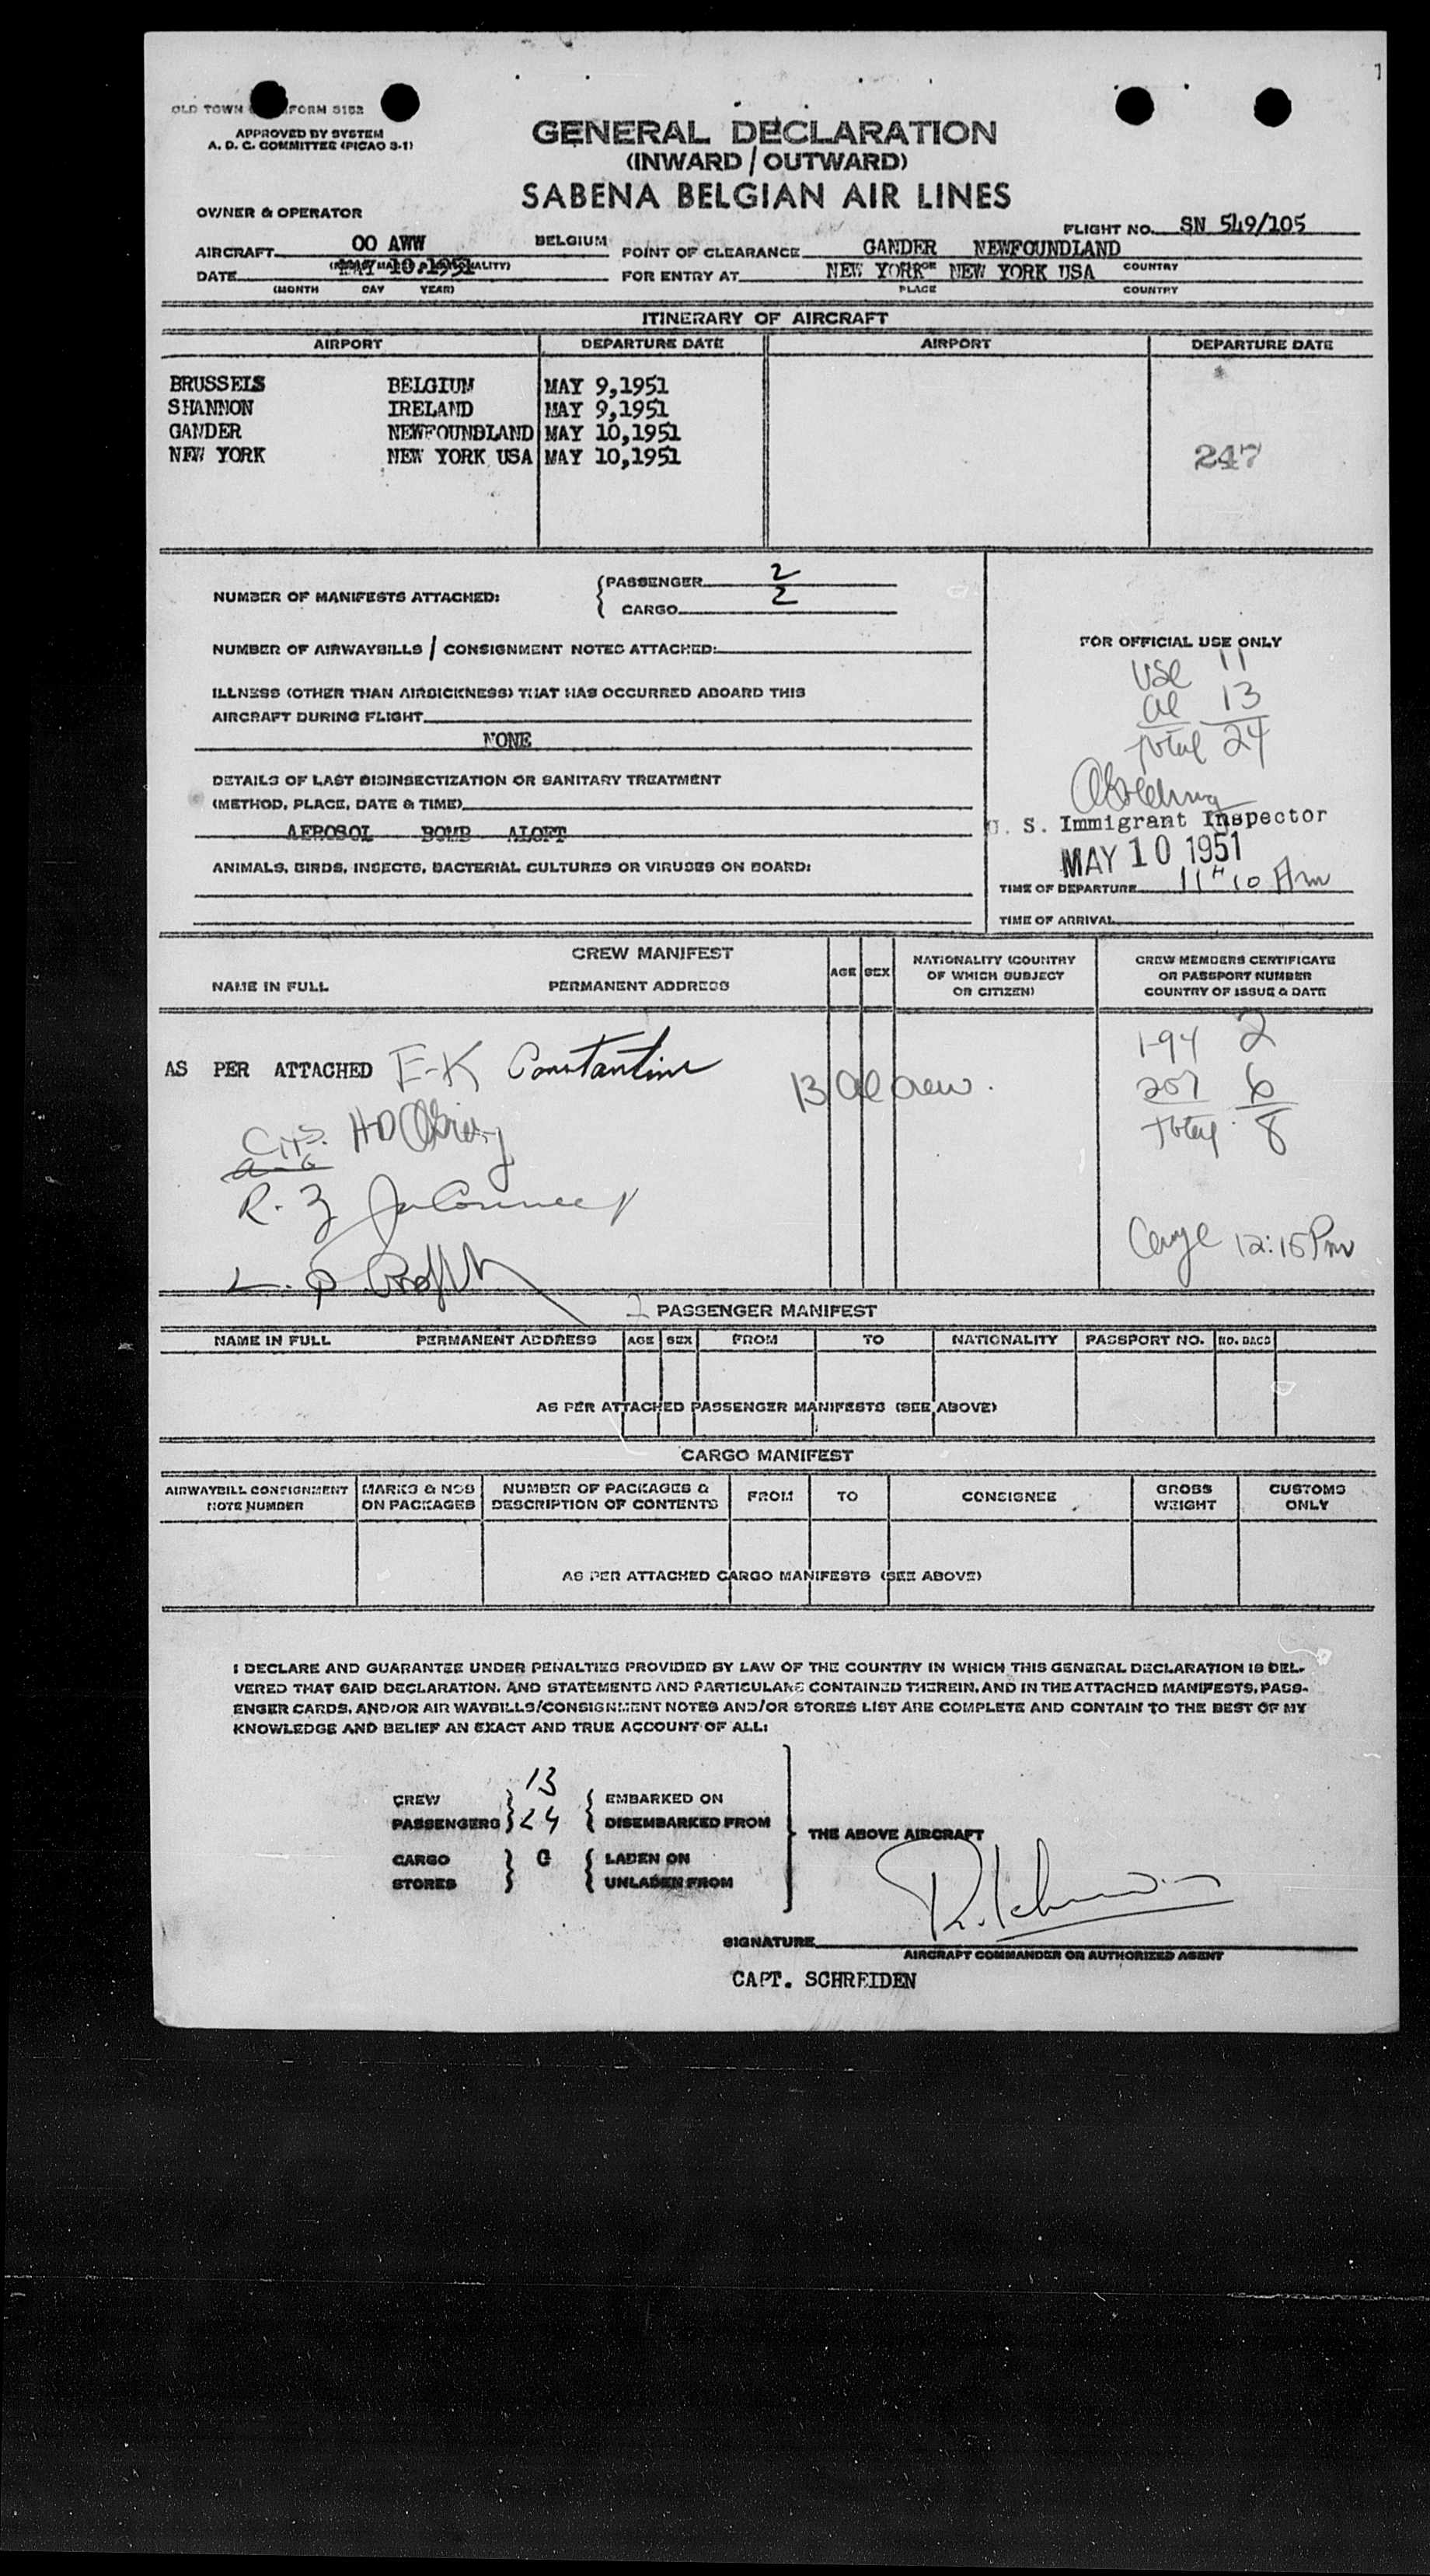 1
OLD TOWN FORM 5152
APPROVED BY SYSTEM
A. D. C. COMMITTEE (PICAO 3-1)
GENERAL DECLARATION
(INWARD / OUTWARD)
SABENA BELGIAN AIR LINES
OWNER & OPERATOR
FLIGHT NO. SN 549/105
AIRCRAFT OO AWW BELGIUM POINT OF CLEARANCE GANDER NEWFOUNDLAND
DATE MAY 10,1951 FOR ENTRY AT NEW YORK NEW YORK USA COUNTRY
(MONTH DAY YEAR) PLACE COUNTRY
ITINERARY OF AIRCRAFT
AIRPORT DEPARTURE DATE AIRPORT DEPARTURE DATE
BRUSSELS BELGIUM MAY 9,1951
SHANNON IRELAND MAY 9,1951
GANDER NEWFOUNDLAND MAY 10,1951
NEW YORK NEW YORK USA MAY 10,1951 247
NUMBER OF MANIFESTS ATTACHED: PASSENGER 2
CARGO 2
NUMBER OF AIRWAYBILLS / CONSIGNMENT NOTES ATTACHED:
ILLNESS (OTHER THAN AIRSICKNESS) THAT HAS OCCURRED ABOARD THIS
AIRCRAFT DURING FLIGHT
NONE
DETAILS OF LAST DISINSECTIZATION OR SANITARY TREATMENT
(METHOD, PLACE, DATE & TIME)
AEROSOL BOMB ALOFT
ANIMALS, BIRDS, INSECTS, BACTERIAL CULTURES OR VIRUSES ON BOARD:
FOR OFFICIAL USE ONLY
USC 11
al 13
Total 24
U. S. Immigrant Inspector
MAY 10 1951
TIME OF DEPARTURE 11 10 Am
TIME OF ARRIVAL
CREW MANIFEST
NAME IN FULL PERMANENT ADDRESS AGE SEX NATIONALITY (COUNTRY OF WHICH SUBJECT OR CITIZEN) CREW MEMBERS CERTIFICATE OR PASSPORT NUMBER COUNTRY OF ISSUE & DATE
AS PER ATTACHED E-K Constantine
13 al crew.
I-94 2
257 6
Total 8
12:15 Pm
2 PASSENGER MANIFEST
NAME IN FULL PERMANENT ADDRESS AGE SEX FROM TO NATIONALITY PASSPORT NO. NO. BAGS
AS PER ATTACHED PASSENGER MANIFESTS (SEE ABOVE)
CARGO MANIFEST
AIRWAYBILL CONSIGNMENT NOTE NUMBER MARKS & NOS ON PACKAGES NUMBER OF PACKAGES & DESCRIPTION OF CONTENTS FROM TO CONSIGNEE GROSS WEIGHT CUSTOMS ONLY
AS PER ATTACHED CARGO MANIFESTS (SEE ABOVE)
I DECLARE AND GUARANTEE UNDER PENALTIES PROVIDED BY LAW OF THE COUNTRY IN WHICH THIS GENERAL DECLARATION IS DEL-
VERED THAT SAID DECLARATION, AND STATEMENTS AND PARTICULARS CONTAINED THEREIN, AND IN THE ATTACHED MANIFESTS, PASS-
ENGER CARDS, AND/OR AIR WAYBILLS/CONSIGNMENT NOTES AND/OR STORES LIST ARE COMPLETE AND CONTAIN TO THE BEST OF MY
KNOWLEDGE AND BELIEF AN EXACT AND TRUE ACCOUNT OF ALL:
CREW 13 EMBARKED ON
PASSENGERS 24 DISEMBARKED FROM
THE ABOVE AIRCRAFT
CARGO 0 LADEN ON
STORES UNLADEN FROM
SIGNATURE
AIRCRAFT COMMANDER OR AUTHORIZED AGENT
CAPT. SCHREIDEN